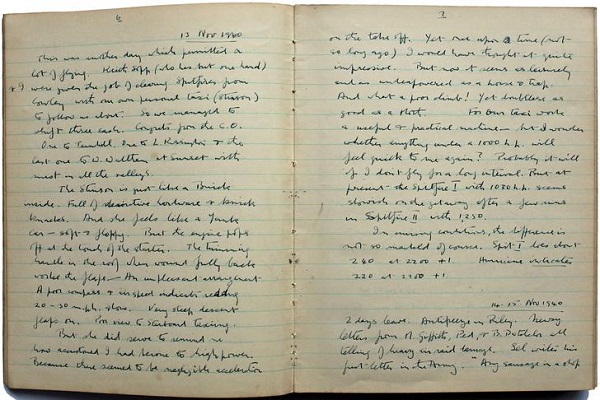 6
13 Nov 1940
This was another day which permitted a
lot of flying. Keith Sopp (who has but one hand)
& I were given the job of clearing Spitfires from
Cowley with our own personal taxi (Stinson)
to follow us about. So we managed to
shift three each. Congrats from the C.O.
One to Ternhill, One to L. Rissington & the
last one to W. Waltham at sunset with
mist in all the valleys.
The Stinson is just like a Buick
inside. Full of hardware & knick
knacks. And she feels like a Yank
car - soft & floppy. But the engine pops
off at the touch of the starter. The trimming
handle in the roof when wound fully back
works the flaps - An unpleasant arrangement
A poor compass & airspeed indicator reading
20-30 m.p.h. slow. Very steep descent
flaps on. Poor view to starboard taxiing.
But she did serve to remind me
how accustomed I had become to high power.
Because there seemed to be negligible acceleration
7
on the take off. Yet once upon a time (not
so long ago) I would have thought it quite
impressive. But now it seems as leisurely
and as underpowered as a house & trap.
And what a poor climb! Yet doubtless as
good as a lot. For our taxi work
a useful & practical machine - but I wonder
whether anything under a 1000 h.p. will
feel quick to me again? Probably it will
if I don't fly for a long interval. But at
present the Spitfire I with 1030 h.p. seems
slowish on the getaway after a few runs
in Spitfire II with 1,250.
In cruising conditions, the difference is
not so marked of course. Spit I does about
240 at 2200 +1. Hurricane indicates
220 at 2200 +1.
14-15 Nov 1940
2 days leave. Antifreeze in Riley. Many
letters from M. Griffiths, Pad, & B. Dotchets all
telling of heavy air raid damage. Sel writes his
first letter in the Army. Any sausage in a shop